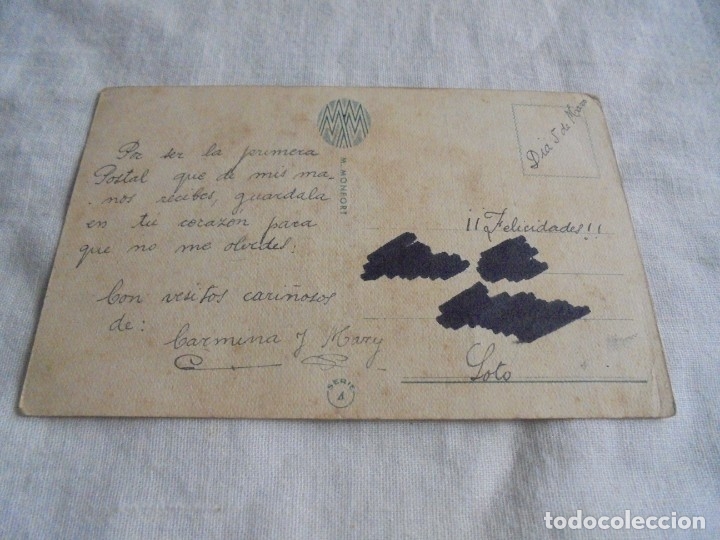 Por ser la primera
Postal que de mis ma-
nos recibes, guardala
en tu corazón para
que no me olvides:
Con vesitos cariñosos
de:
Carmina y Mary
M. MONFORT
SERIE
4
Dia 5 de
¡¡Felicidades!!
Soto
todocoleccion
todocoleccion.net